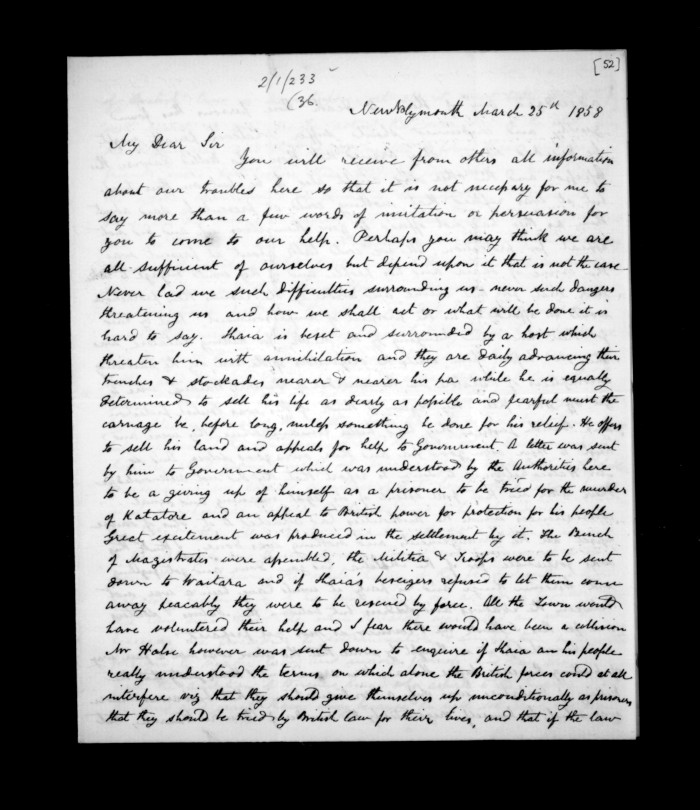 [52]
2/1/233
(36.
New Plymouth March 25th 1858
My Dear Sir
You will receive from others all information
about our troubles here so that it is not necessary for me to
say more than a few words of invitation or persuasion for
you to come to our help. Perhaps you may think we are
all-sufficient of ourselves but depend upon it that is not the case
Never had we such difficulties surrounding us - never such dangers
threatening us and how we shall act or what will be done it is
hard to say. Ihaia is beset and surrounded by a host which
threaten him with annihilation and they are daily advancing their
trenches & stockades nearer & nearer his pa while he is equally
determined to sell his life as dearly as possible and fearful must the
carnage be, before long, unless something be done for his relief. He offers
to sell his land and appeals for help to Government. A letter was sent
by him to Government which was understood by the Authorities here
to be a giving up of himself as a prisoner to be tried for the murder
of Katatore and an appeal to British power for protection for his people
Great excitement was produced in the settlement by it. The Bench
of Magistrates were assembled, the Militia & Troops were to be sent
down to Waitara and if Ihaia's besiegers refused to let them come
away peacably they were to be rescued by force. All the Town would
have voluntered their help and I fear there would have been a collision
Mr Halse however was sent down to enquire if Ihaia an his people
really understood the terms on which alone the British forces could at all
interfere viz that they should give themselves up unconditionally as prisoners
that they should be tried by British law for their lives, and that if the law